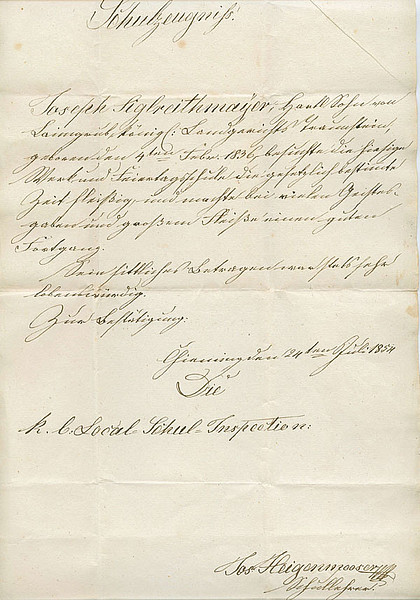 Schulzeugniß.
Joseph Siglreithmayer, Sohn von
Laimgrub, königl: Landgerichts Traunstein,
geboren den 4ten Febr. 1836, besuchte die hiesige
Werk und Feiertagsschule die gesetzlich bestimmte
Zeit fleißig, und machte bei vielen Geistes-
gaben und großem Fleiße einen guten
Fortgang.
Sein sittliches Betragen war stets sehr
lobenswürdig.
Zur Bestätigung:
Chieming den 24ten Juli 1854
Die
k. b. Local-Schul-Inspection:
Jos. Heigenmooser
Schullehrer.